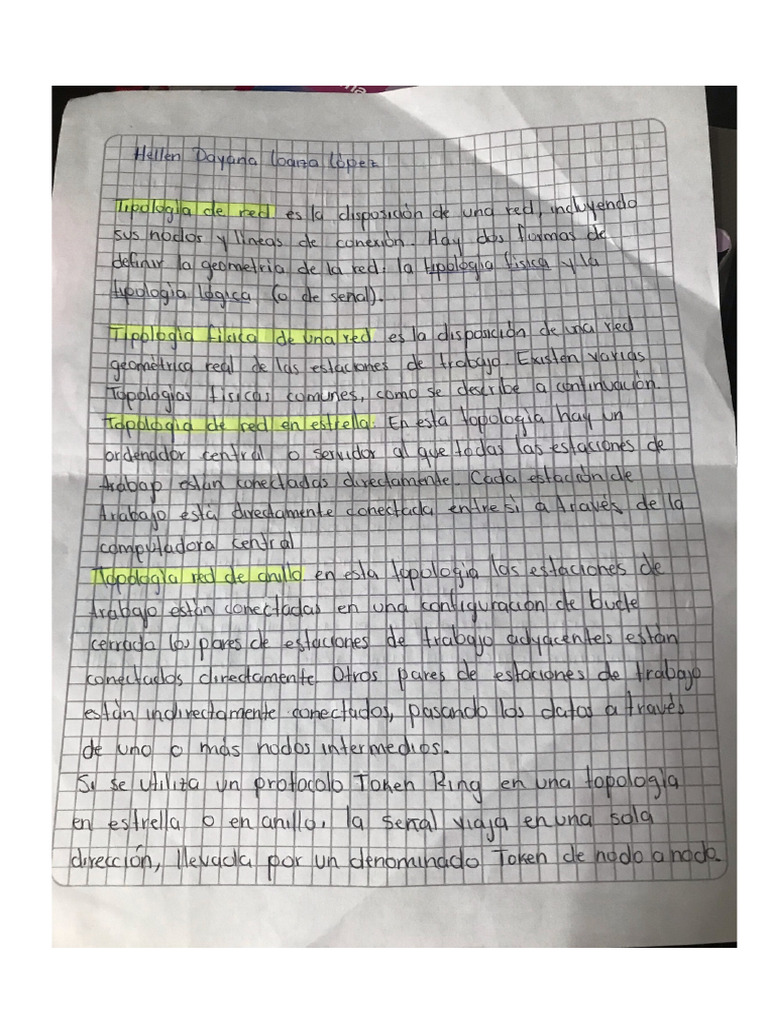 Hellen Dayana Loaiza López
Tipología de red es la disposición de una red, incluyendo
sus nodos y líneas de conexión. Hay dos formas de
definir la geometría de la red: la tipología física y la
tipología lógica (o de señal).
Tipología física de una red es la disposición de una red
geométrica real de las estaciones de trabajo. Existen varias
Topologías físicas comunes, como se describe a continuación.
Topología de red en estrella: En esta topología hay un
ordenador central o servidor al que todas las estaciones de
trabajo están conectadas directamente. Cada estación de
trabajo está directamente conectada entre sí a través de la
computadora central
Topología red de anillo en esta topología las estaciones de
trabajo están conectadas en una configuración de bucle
cerrada los pares de estaciones de trabajo adyacentes están
conectados directamente. Otros pares de estaciones de trabajo
están indirectamente conectados, pasando los datos a través
de uno o más nodos intermedios.
Si se utiliza un protocolo Token Ring en una topología
en estrella o en anillo, la señal viaja en una sola
dirección, llevada por un denominado Token de nodo a nodo.